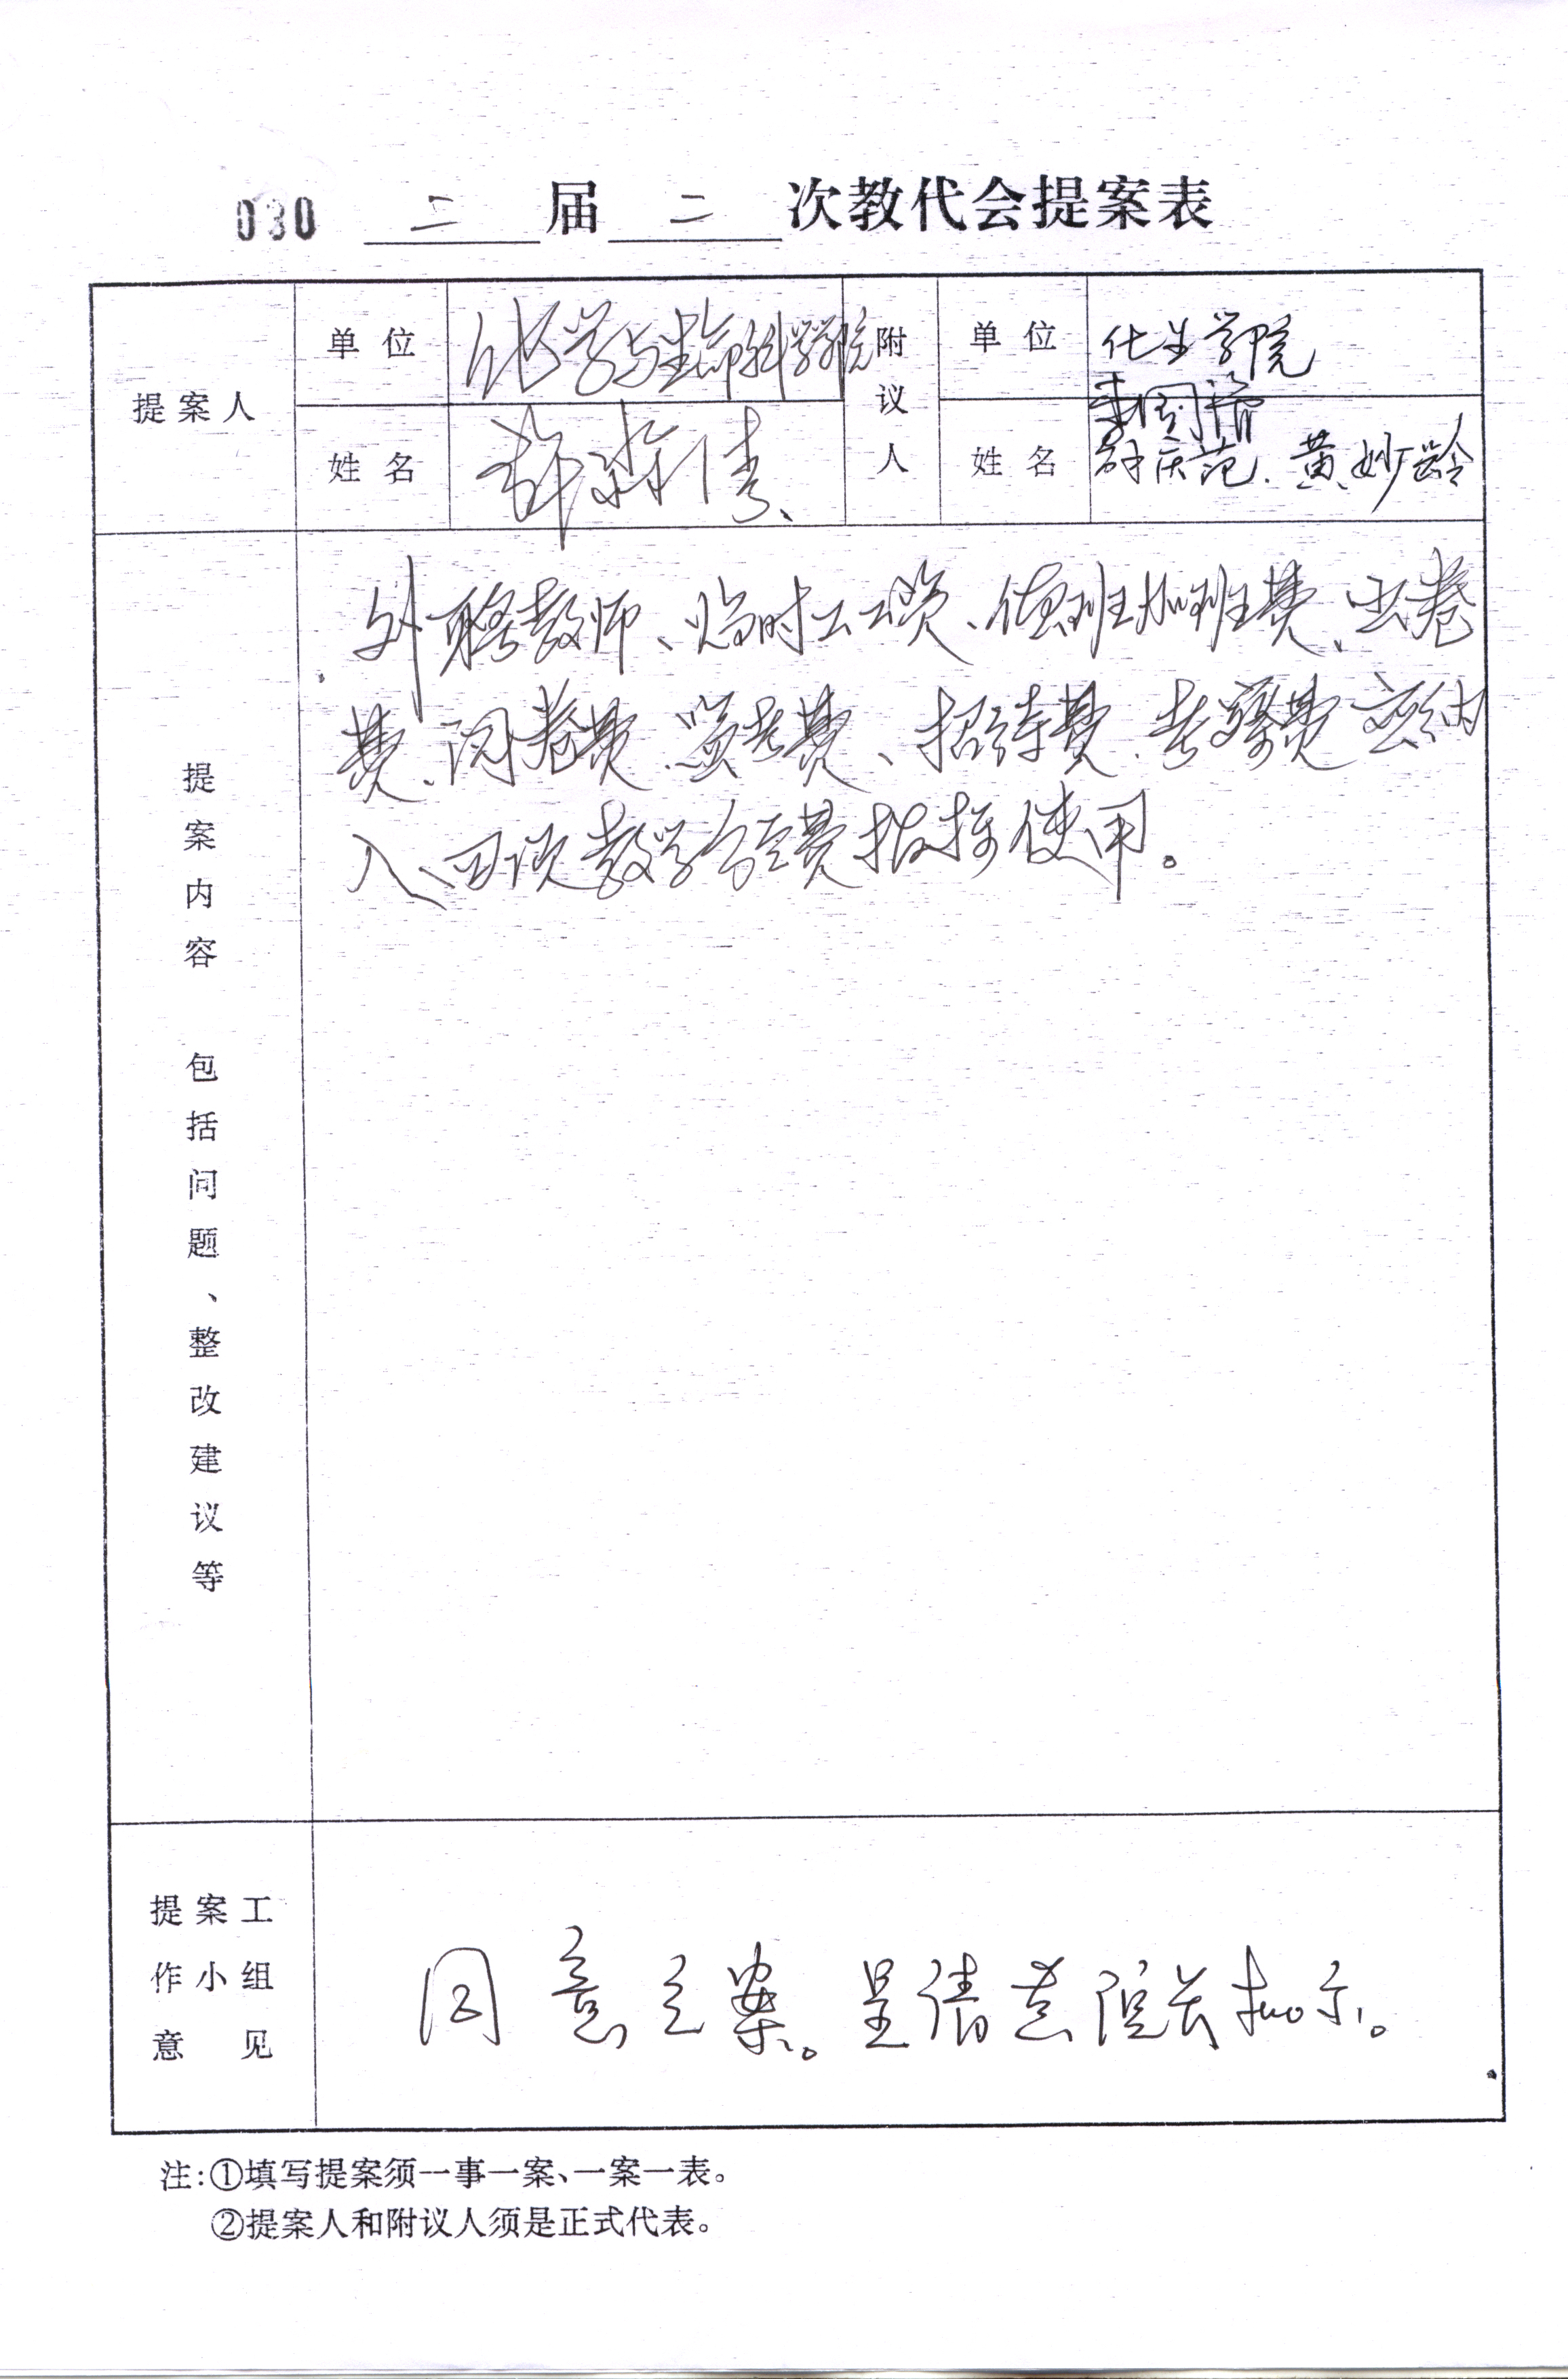 030 二 届 二 次教代会提案表
提案人
单位
化学与生命科学学院
附议人
单位
化生学院
姓名
姓名
黄妙龄
提案内容 包括问题、整改建议等
外聘教师、临时工工资、值班加班费、出卷
费、阅卷费、监考费、招待费、考察费应纳
入四项教学经费指标使用。
提案工
作小组
意见
同意立案。呈请袁院长批示。
注:①填写提案须一事一案、一案一表。
②提案人和附议人须是正式代表。